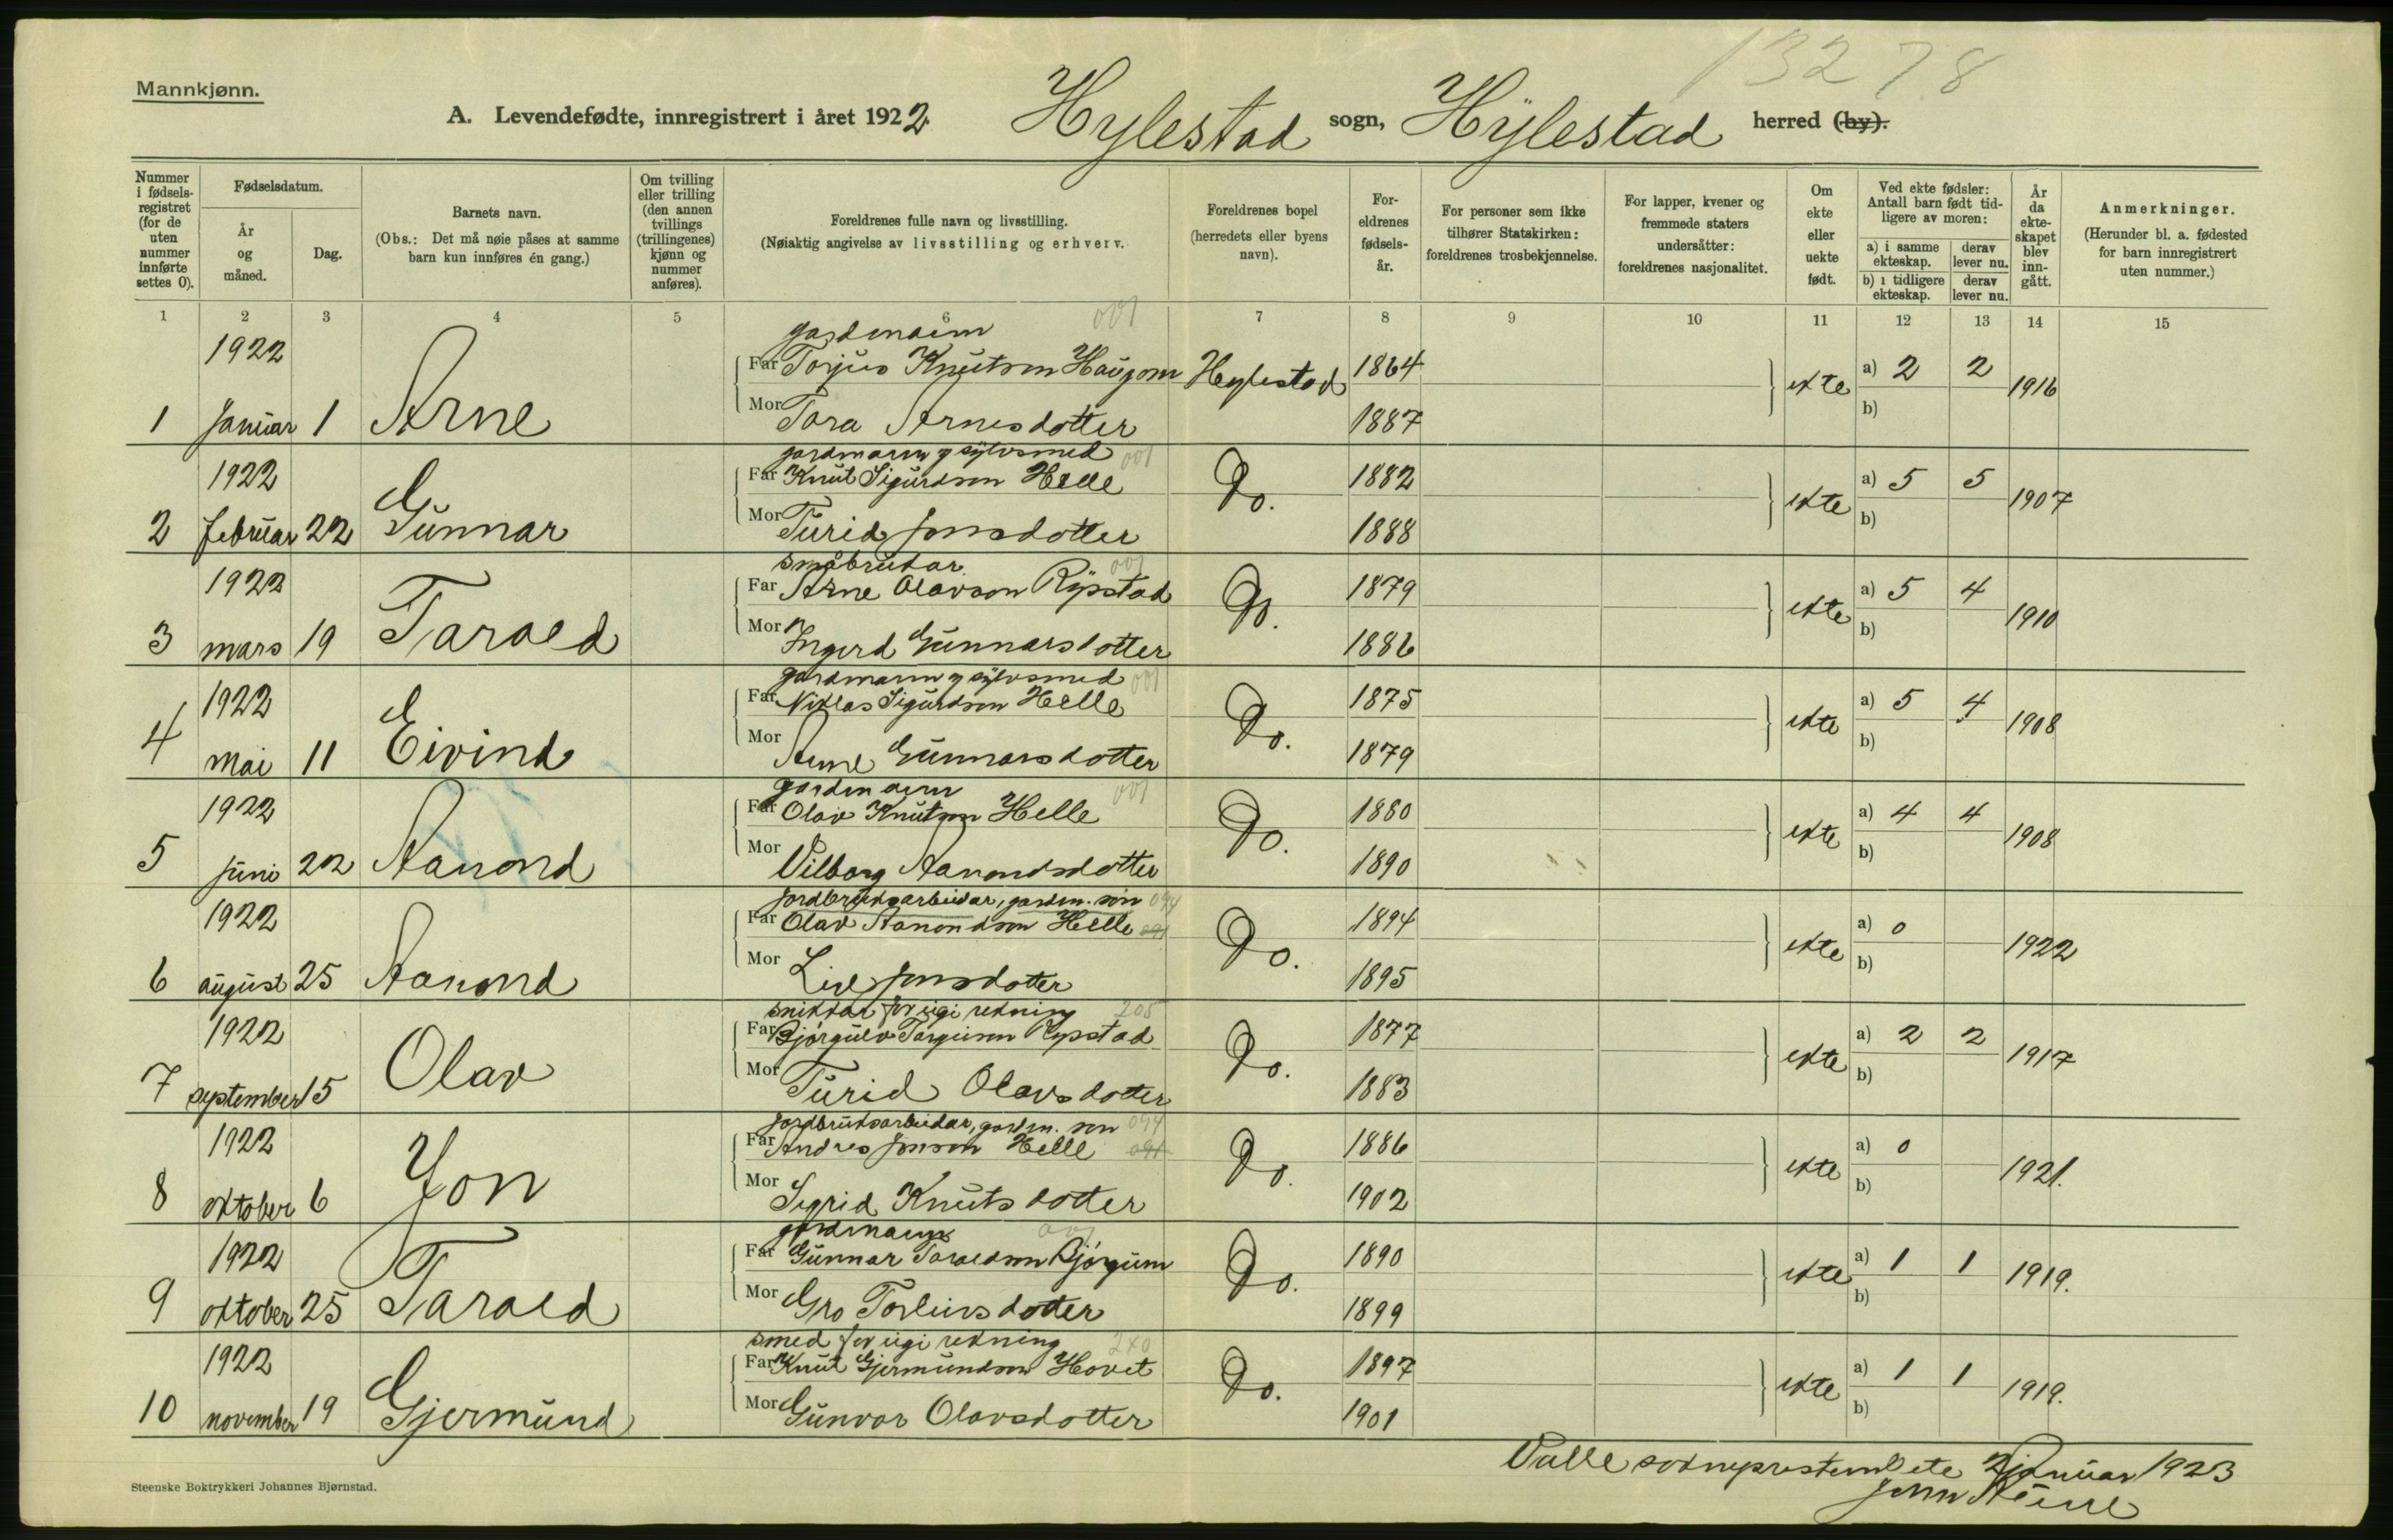 13278
Mannkjønn.
A. Levendefødte, innregistrert i året 1922. Hylestad sogn, Hylestad herred (by).
Nummer i fødselsregistret (for de uten nummer innførte settes 0).
Fødselsdatum.
År og måned.
Dag.
Barnets navn.
(Obs.: Det må nøie påses at samme barn kun innføres én gang.)
Om tvilling eller trilling (den annen tvillings (trillingenes) kjønn og nummer anføres).
Foreldrenes fulle navn og livsstilling.
(Nøiaktig angivelse av livsstilling og erhverv.
Foreldrenes bopel (herredets eller byens navn).
Foreldrenes fødselsår.
For personer som ikke tilhører Statskirken: foreldrenes trosbekjennelse.
For lapper, kvener og fremmede staters undersåtter: foreldrenes nasjonalitet.
Om ekte eller uekte født.
Ved ekte fødsler: Antall barn født tidligere av moren:
a) i samme ekteskap. derav lever nu.
b) i tidligere ekteskap. derav lever nu.
År da ekteskapet blev inngått.
Anmerkninger.
(Herunder bl. a. fødested for barn innregistrert uten nummer.)
1 2 3 4 5 6 7 8 9 10 11 12 13 14 15
1922 gardmann 001
Far Torjus Knutson Haugom Hylestad 1864 ekte a) 2 2 1916
1 Januar 1 Arne Mor Tora Arnesdotter 1887 b)
1922 gardmann og sylvsmed 001
Far Knut Sigurdson Helle Do. 1882 ekte a) 5 5 1907
2 februar 22 Gunnar Mor Turid Jonsdotter 1888 b)
1922 småbrukar 001
Far Arne Olavson Rysstad Do. 1879 ekte a) 5 4 1910
3 mars 19 Tarald Mor Ingerd Gunnarsdotter 1886 b)
1922 gardmann og sylvsmed 001
Far Niklas Sigurdson Helle Do. 1875 ekte a) 5 4 1908
4 mai 11 Eivind Mor Anne Gunnarsdotter 1879 b)
1922 gardmann 001
Far Olav Knutson Helle Do. 1880 ekte a) 4 4 1908
5 juni 22 Aanond Mor Vilborg Aanondsdotter 1890 b)
1922 jordbruksarbeidar, gardm. son 094
Far Olav Aanondson Helle Do. 1894 ekte a) 0 1922
6 august 25 Aanond Mor Liv Jonsdotter 1895 b)
1922 snikkar for eigi rekning 205
Far Bjørgulv Torgeirson Rysstad Do. 1877 ekte a) 2 2 1917
7 september 15 Olav Mor Turid Olavsdotter 1883 b)
1922 jordbruksarbeidar, gardm. son 094
Far Andres Jonson Helle Do. 1886 ekte a) 0 1921.
8 oktober 6 Jon Mor Sigrid Knutsdotter 1902 b)
1922 gardmann 001
Far Gunnar Taraldson Bjørgum Do. 1890 ekte a) 1 1 1919.
9 oktober 25 Tarald Mor Gro Torleivsdotter 1899 b)
1922 smed for eigi rekning 240
Far Knut Gjermundson Hovet Do. 1897 ekte a) 1 1 1919.
10 november 19 Gjermund Mor Gunvor Olavsdotter 1901 b)
Valle sokneprestembete januar 1923
Steenske Boktrykkeri Johannes Bjørnstad.